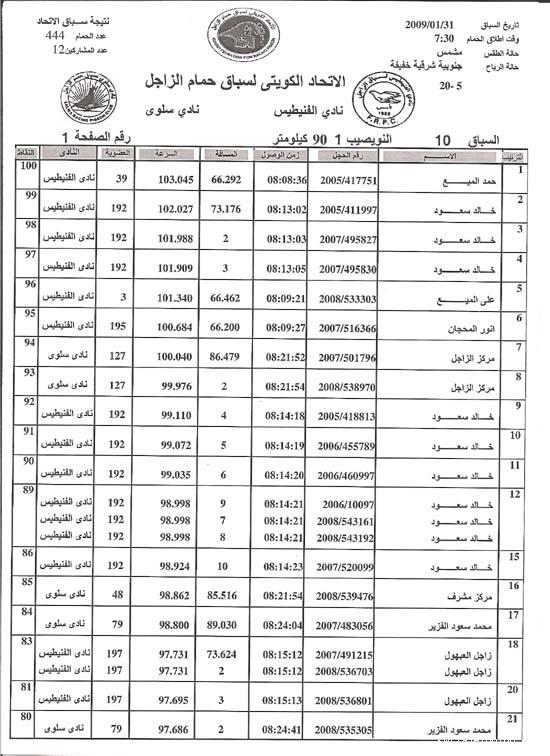 تاريخ السباق 2009/01/31
وقت اطلاق الحمام 7:30
حالة الطقس مشمس
حالة الرياح جنوبية شرقية خفيفة
20- 5
نتيجة سباق الاتحاد
عدد الحمام 444
عدد المشاركين 12
الاتحاد الكويتى لسباق حمام الزاجل
نادي الفنيطيس نادي سلوى
F.R.P.C.
السباق 10 النويصيب 1 90 كيلومتر رقم الصفحة 1
الترتيب الاسم رقم الحجل زمن الوصول المسافة السرعة العضوية النادى النقاط
1 حمد الميع 2005/417751 08:08:36 66.292 103.045 39 نادى الفنيطيس 100
2 خالد سعود 2005/411997 08:13:02 73.176 102.027 192 نادى الفنيطيس 99
3 خالد سعود 2007/495827 08:13:03 2 101.988 192 نادى الفنيطيس 98
4 خالد سعود 2007/495830 08:13:05 3 101.909 192 نادى الفنيطيس 97
5 على الميع 2008/533303 08:09:21 66.462 101.340 3 نادى الفنيطيس 96
6 انور المحجان 2007/516366 08:09:27 66.200 100.684 195 نادى الفنيطيس 95
7 مركز الزاجل 2007/501796 08:21:52 86.479 100.040 127 نادى سلوى 94
8 مركز الزاجل 2008/538970 08:21:54 2 99.976 127 نادى سلوى 93
9 خالد سعود 2005/418813 08:14:18 4 99.110 192 نادى الفنيطيس 92
10 خالد سعود 2006/455789 08:14:19 5 99.072 192 نادى الفنيطيس 91
11 خالد سعود 2006/460997 08:14:20 6 99.035 192 نادى الفنيطيس 90
12 خالد سعود 2006/10097 08:14:21 9 98.998 192 نادى الفنيطيس 89
خالد سعود 2008/543161 08:14:21 7 98.998 192 نادى الفنيطيس
خالد سعود 2008/543192 08:14:21 8 98.998 192 نادى الفنيطيس
15 خالد سعود 2007/520099 08:14:23 10 98.924 192 نادى الفنيطيس 86
16 مركز مشرف 2008/539476 08:21:54 85.516 98.862 48 نادى سلوى 85
17 محمد سعود الفزير 2007/483056 08:24:04 89.030 98.800 79 نادى سلوى 84
18 زاجل العبهول 2007/491215 08:15:12 73.624 97.731 197 نادى الفنيطيس 83
زاجل العبهول 2008/536703 08:15:12 2 97.731 197 نادى الفنيطيس
20 زاجل العبهول 2008/536801 08:15:13 3 97.695 197 نادى الفنيطيس 81
21 محمد سعود الفزير 2008/535305 08:24:41 2 97.686 79 نادى سلوى 80